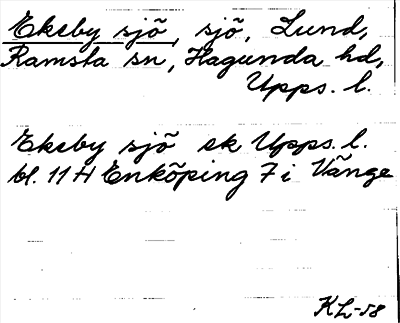 Ekeby sjö, sjö, Lund,
Ramsta sn, Hagunda hd,
Upps. l.
Ekeby sjö ek Upps. l.
bl. 11 H Enköping 7 i Vänge
KL-58